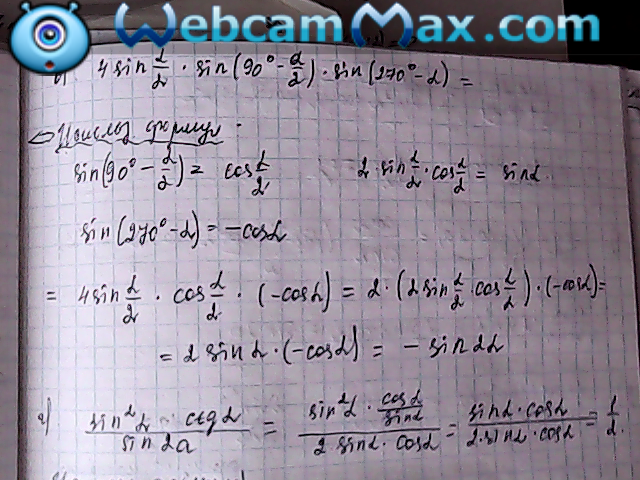 WebcamMax.com
4 sin α/2 · sin(90° - α/2) · sin(270° - α) =
формул:
sin(90° - α/2) = cos α/2
2 · sin α/2 · cos α/2 = sin α.
sin(270° - α) = -cos α
= 4 sin α/2 · cos α/2 · (-cos α) = 2 · (2 sin α/2 · cos α/2) · (-cos α) =
= 2 sin α · (-cos α) = - sin 2α
г) (sin² α · ctg α)/(sin 2α) = (sin² α · cos α/sin α)/(2 · sin α · cos α) = (sin α · cos α)/(2 · sin α · cos α) = 1/2.